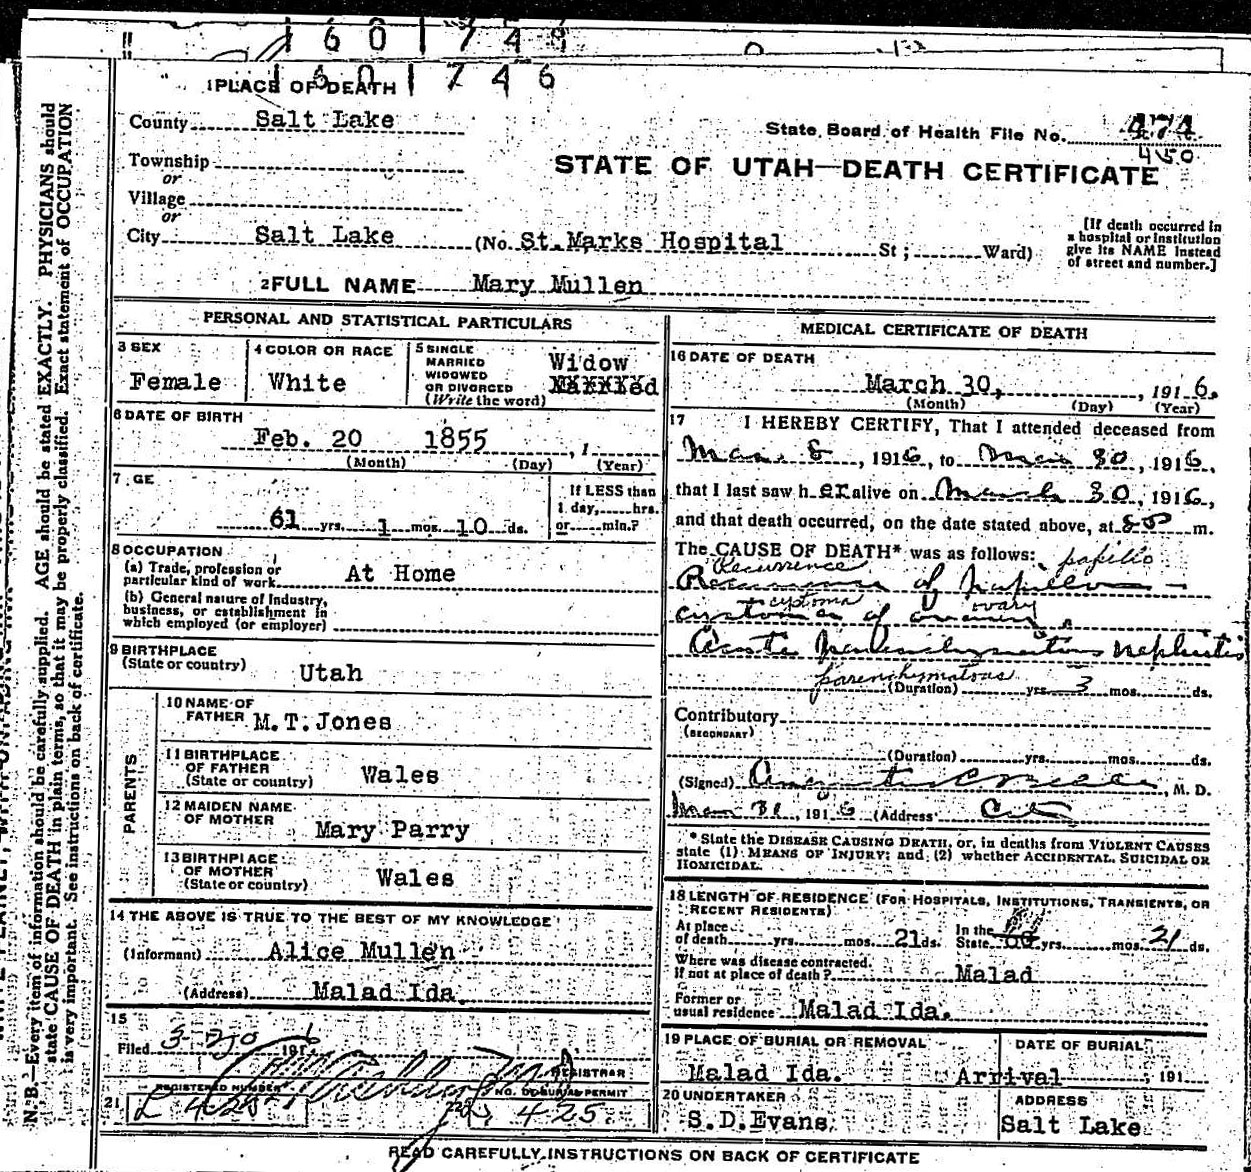 1 6 0 1 7 4
1 6 0 1 7 4 6
1 PLACE OF DEATH
County Salt Lake
State Board of Health File No. 474
450
Township
or
STATE OF UTAH—DEATH CERTIFICATE
Village
or
City Salt Lake (No. St. Marks Hospital St; Ward)
[If death occurred in
a hospital or institution
give its NAME instead
of street and number.]
2 FULL NAME Mary Mullen
PERSONAL AND STATISTICAL PARTICULARS
3 SEX
Female
4 COLOR OR RACE
White
5 SINGLE
MARRIED
WIDOWED
OR DIVORCED
(Write the word)
Widow
Married
6 DATE OF BIRTH
Feb. 20 1855, 1
(Month) (Day) (Year)
7 GE
61 yrs. 1 mos. 10 ds.
If LESS than
1 day, hrs.
or min.?
8 OCCUPATION
(a) Trade, profession or
particular kind of work At Home
(b) General nature of Industry,
business, or establishment in
which employed (or employer)
9 BIRTHPLACE
(State or country) Utah
PARENTS
10 NAME OF
FATHER M.T. Jones
11 BIRTHPLACE
OF FATHER
(State or country) Wales
12 MAIDEN NAME
OF MOTHER Mary Parry
13 BIRTHPLACE
OF MOTHER
(State or country) Wales
14 THE ABOVE IS TRUE TO THE BEST OF MY KNOWLEDGE
(Informant) Alice Mullen
(Address) Malad Ida.
15
Filed 191 6
REGISTRAR
REGISTERED NUMBER
21 L 425
NO. OF BURIAL PERMIT
22 L 425
MEDICAL CERTIFICATE OF DEATH
16 DATE OF DEATH
March 30, , 191 6.
(Month) (Day) (Year)
17 I HEREBY CERTIFY, That I attended deceased from
Mar. 8, 1916, to Mar 30, 1916,
that I last saw h er alive on March 30, 1916,
and that death occurred, on the date stated above, at m.
The CAUSE OF DEATH* was as follows: papillo
Recurrence
Recurrence of papillo—
cystoma ovary
cystoma of ovary
Acute parenchymatous nephritis
parenchymatous
(Duration) yrs. 3 mos. ds.
Contributory
(SECONDARY)
(Duration) yrs. mos. ds.
(Signed) , M. D.
Mar 31, 191 6 (Address) City
* State the DISEASE CAUSING DEATH, or, in deaths from VIOLENT CAUSES
state (1) MEANS OF INJURY; and (2) whether ACCIDENTAL, SUICIDAL OR
HOMICIDAL.
18 LENGTH OF RESIDENCE (FOR HOSPITALS, INSTITUTIONS, TRANSIENTS, OR
RECENT RESIDENTS)
At place
of death yrs. mos. 21 ds.
In the
State yrs. mos. 21 ds.
Where was disease contracted,
If not at place of death? Malad
Former or
usual residence Malad Ida.
19 PLACE OF BURIAL OR REMOVAL
Malad Ida.
DATE OF BURIAL
Arrival , 191
20 UNDERTAKER
S.D. Evans
ADDRESS
Salt Lake
READ CAREFULLY INSTRUCTIONS ON BACK OF CERTIFICATE
N. B.—Every item of information should be carefully supplied. AGE should be stated EXACTLY. PHYSICIANS should
state CAUSE OF DEATH in plain terms, so that it may be properly classified. Exact statement of OCCUPATION
is very important. See instructions on back of certificate.